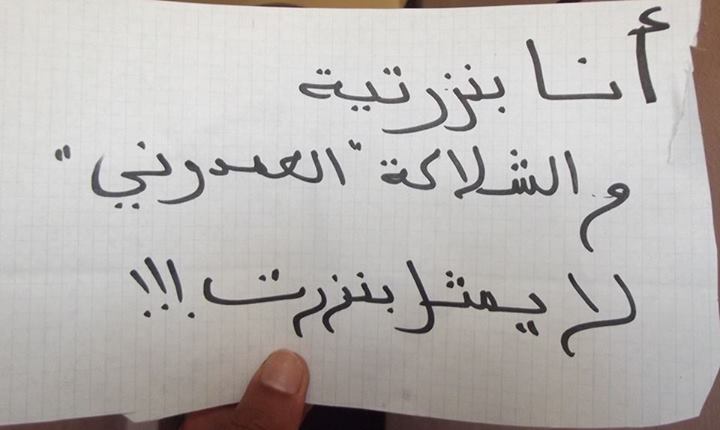 أنا بنزرتية
و الشلاكة "العيدوني"
لا يمثل بنزرت !!!